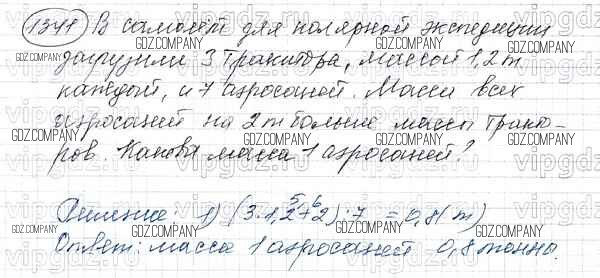 1341 В самолёт для полярной экспедиции
загрузили 3 трактора, массой 1,2 т
каждый, и 7 аэросаней. Масса всех
аэросаней на 2 т больше массы тракто-
ров. Какова масса 1 аэросаней?
Решение: 1) (3·1,2+2):7 = 0,8 (т)
5 6
Ответ: масса 1 аэросаней 0,8 тонны.